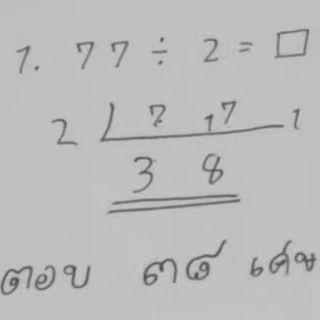 1. 77 ÷ 2 = □
2 7 17 1
3 8
ตอบ ๓๘ เศษ